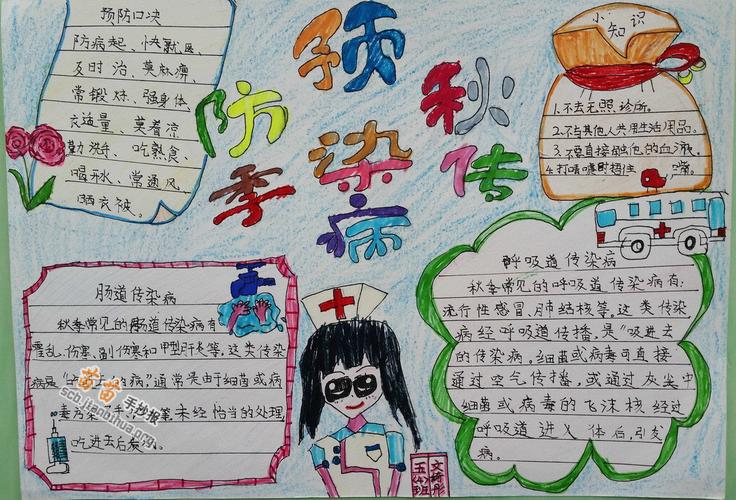 预防秋季传染病
预防口决
防病起、快就医、
及时治、莫麻痹、
常锻炼、强身体、
衣适量、莫着凉
勤洗手、吃熟食、
喝开水、常通风、
晒衣被。
小知识
1.不去无照诊所。
2.不与其他人共用生活用品。
3.不要直接触他的血液。
4.打喷嚏时捂住 嘴。
肠道传染病
秋季常见的肠道传染病有
霍乱、伤寒、副伤寒和甲型肝炎等,这类传染
病是 病,"通常是由于细菌或病
毒污染 手、 等未经恰当的处理,
吃进去后发
呼吸道传染病
秋季常见的呼吸道传染病有:
流行性感冒、肺结核等。这类传染
病经呼吸道传播,是"吸进去
的传染病。细菌或病毒可直接
通过空气传播,或通过灰尘中
细菌或病毒的飞沫核经过
呼吸道进入体后,引发
病。
苗苗手抄报
scb.jitanzhua.org
五 班
文 彤